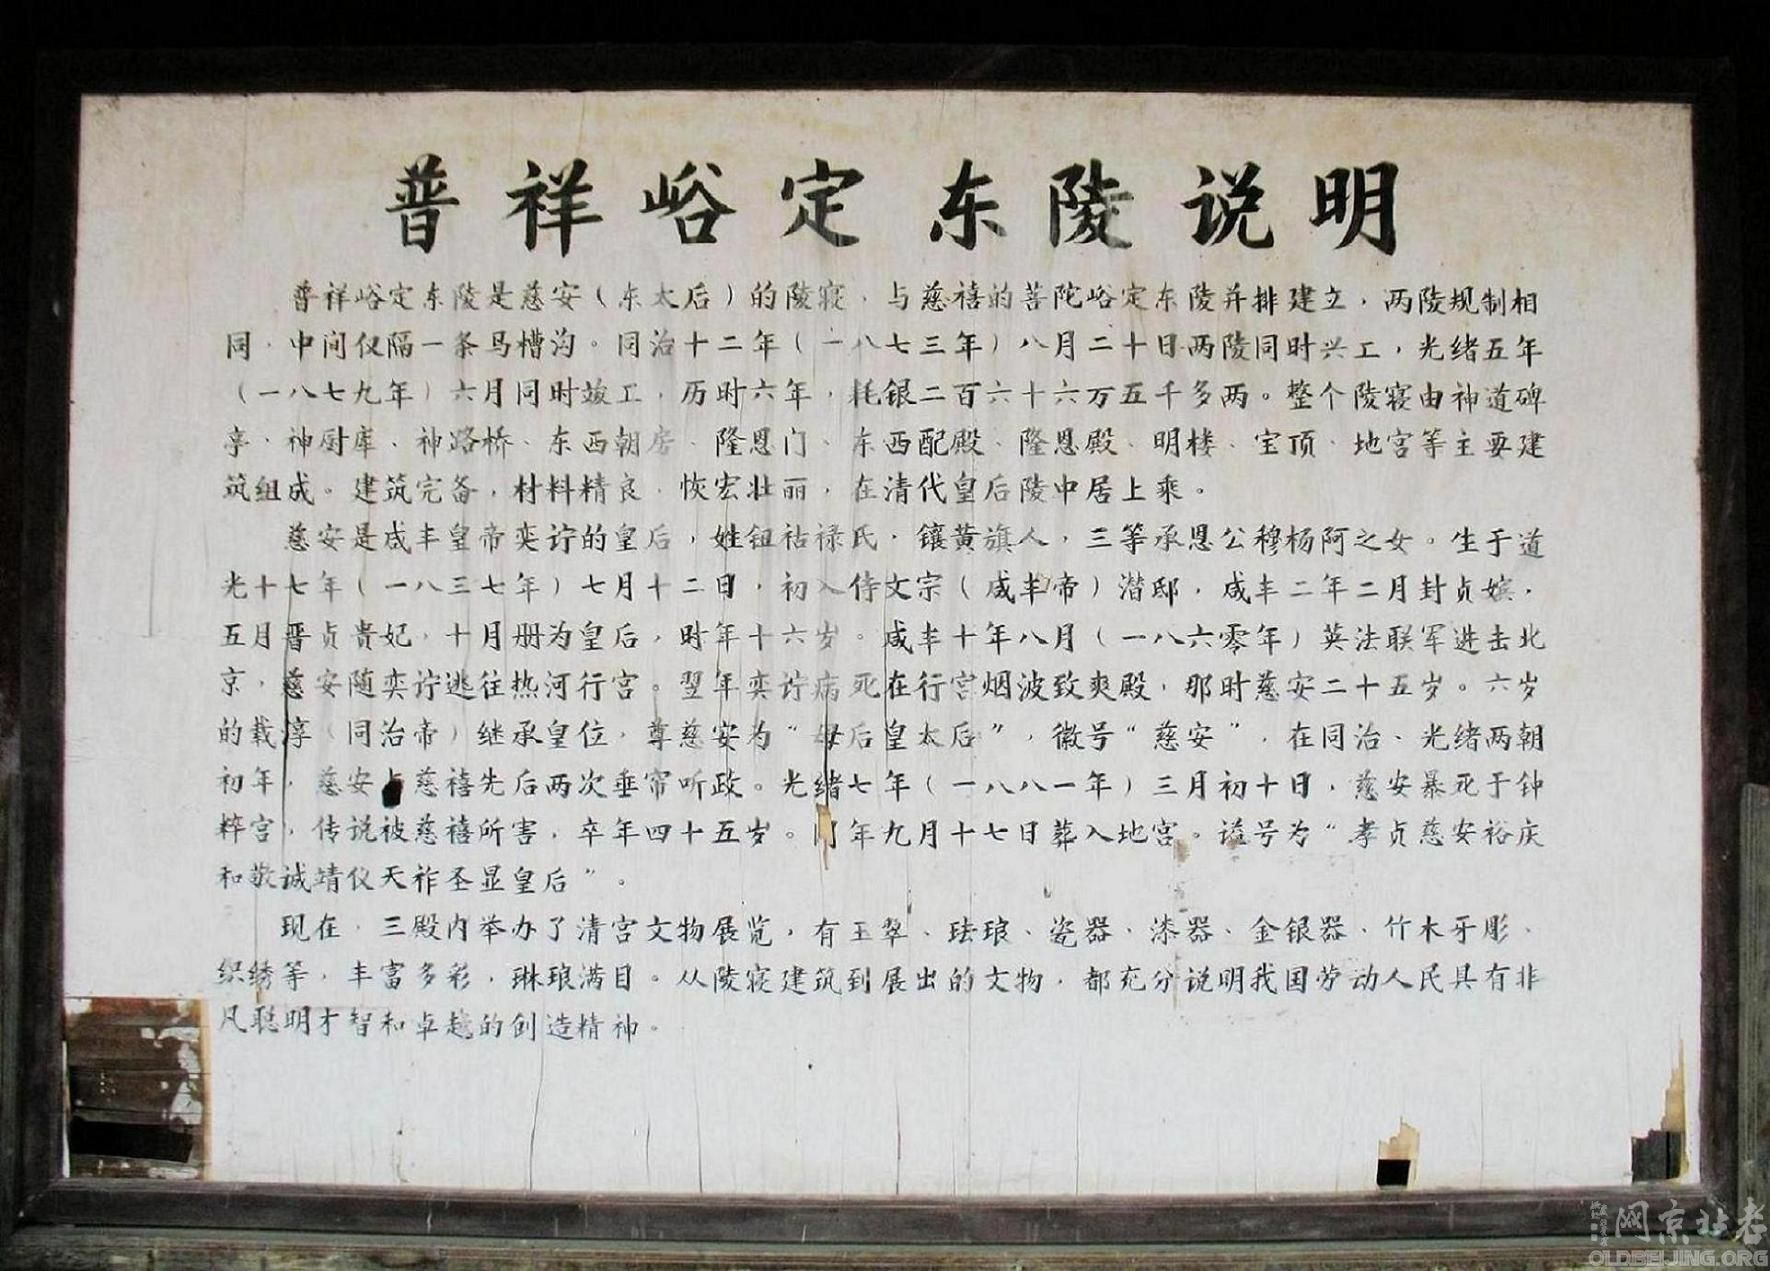 普祥峪定东陵说明
普祥峪定东陵是慈安（东太后）的陵寝，与慈禧的菩陀峪定东陵并排建立，两陵规制相
同，中间仅隔一条马槽沟。同治十二年（一八七三年）八月二十日两陵同时兴工，光绪五年
（一八七九年）六月同时竣工，历时六年，耗银二百六十六万五千多两。整个陵寝由神道碑
亭、神厨库、神路桥、东西朝房、隆恩门、东西配殿、隆恩殿、明楼、宝顶、地宫等主要建
筑组成。建筑完备，材料精良，恢宏壮丽，在清代皇后陵中居上乘。
慈安是咸丰皇帝奕詝的皇后，姓钮祜禄氏，镶黄旗人，三等承恩公穆杨阿之女。生于道
光十七年（一八三七年）七月十二日，初入侍文宗（咸丰帝）潜邸，咸丰二年二月封贞嫔，
五月晋贞贵妃，十月册为皇后，时年十六岁。咸丰十年八月（一八六零年）英法联军进击北
京，慈安随奕詝逃往热河行宫。翌年奕詝病死在行宫烟波致爽殿，那时慈安二十五岁。六岁
的载淳（同治帝）继承皇位，尊慈安为“母后皇太后”，徽号“慈安”，在同治、光绪两朝
初年，慈安与慈禧先后两次垂帘听政。光绪七年（一八八一年）三月初十日，慈安暴死于钟
粹宫，传说被慈禧所害，卒年四十五岁。同年九月十七日葬入地宫。谥号为“孝贞慈安裕庆
和敬诚靖仪天祚圣显皇后”。
现在，三殿内举办了清宫文物展览，有玉翠、珐琅、瓷器、漆器、金银器、竹木牙彫、
织绣等，丰富多彩，琳琅满目。从陵寝建筑到展出的文物，都充分说明我国劳动人民具有非
凡聪明才智和卓越的创造精神。
老北京网
OLDBEIJING.ORG